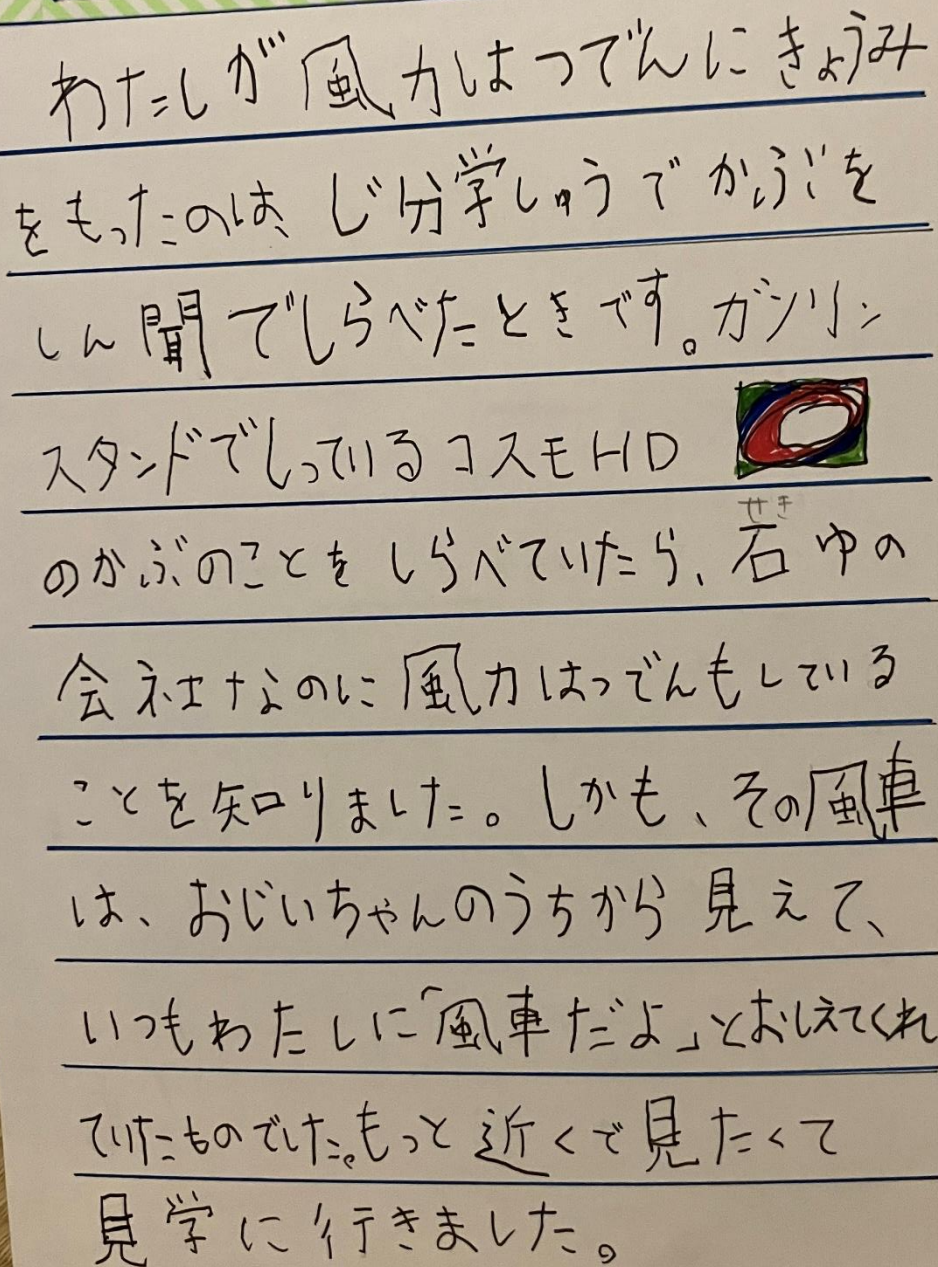 わたしが風力はつでんにきょうみ
をもったのは、じ分学しゅうでかぶを
しん聞でしらべたときです。ガソリン
スタンドでしっているコスモHD
せき
のかぶのことをしらべていたら、石ゆの
会社なのに風力はつでんもしている
ことを知りました。しかも、その風車
は、おじいちゃんのうちから見えて、
いつもわたしに「風車だよ」とおしえてくれ
ていたものでした。もっと近くで見たくて
見学に行きました。